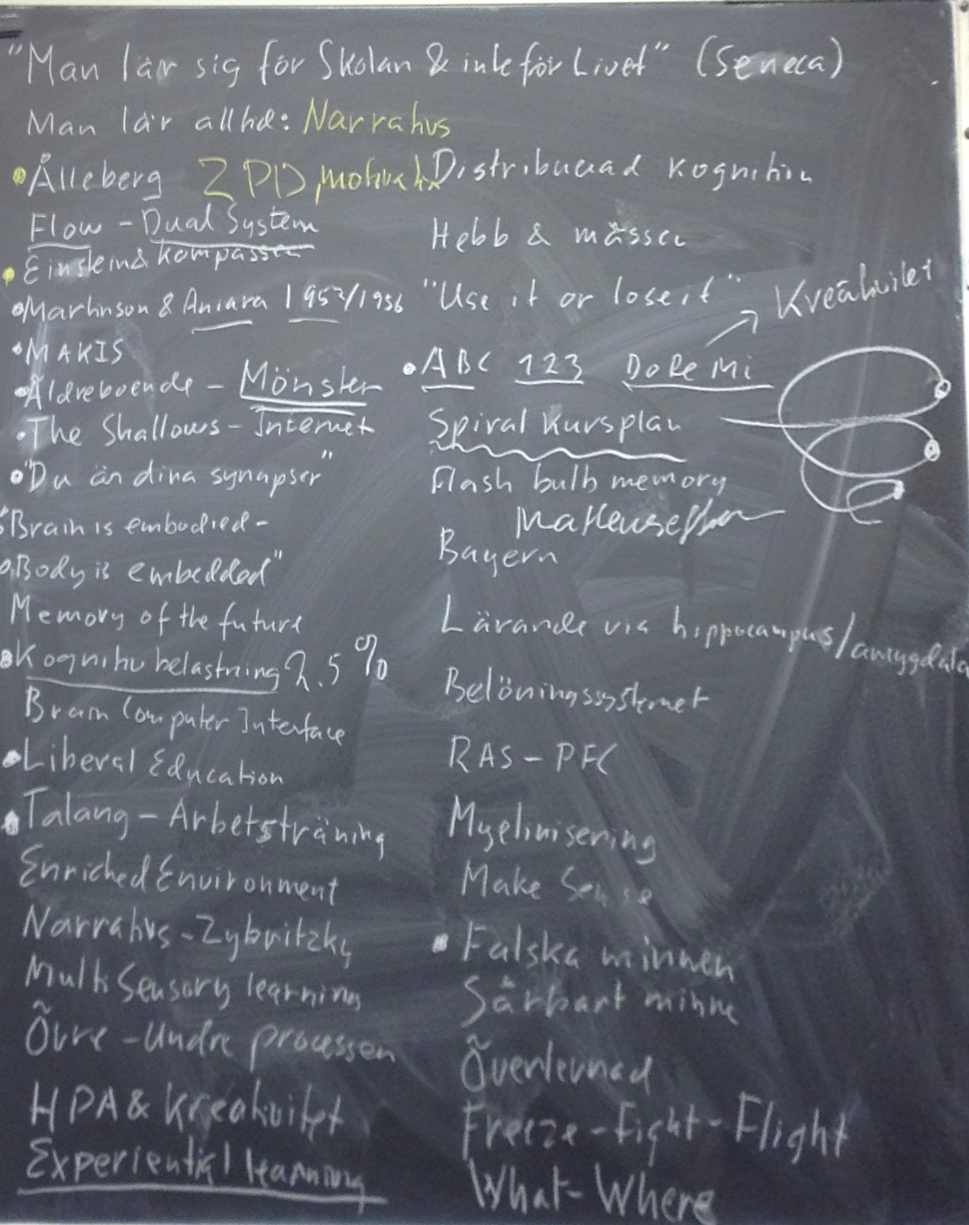 "Man lär sig för Skolan & inte för Livet" (Seneca)
Man lär alltid: Narrativs
Ålleberg ZPD, motivation
Flow - Dual System
Einstein & kompassen
Martinson & Aniara 1953/1956
MAKIS
Äldreboende - Mönster
The Shallows - Internet
"Du är dina synapser"
"Brain is embodied -
Body is embedded"
Memory of the future
Kognitiv belastning 2.5%
Brain Computer Interface
Liberal Education
Talang - Arbetsträning
Enriched Environment
Narrativs - Zybritzky
Multi Sensory learning
Övre - Undre processen
HPA & Kreativitet
Experiential learning
Distribuerad kognition
Hebb & mässen
"Use it or lose it"
Kreativitet
ABC 123 DoReMi
Spiral Kursplan
Flash bulb memory
Bayern
Lärande via hippocampus/amygdala
Belöningssystemet
RAS - PFC
Myelinisering
Make Sense
Falska minnen
Sårbart minne
Överlevnad
Freeze - Fight - Flight
What - Where